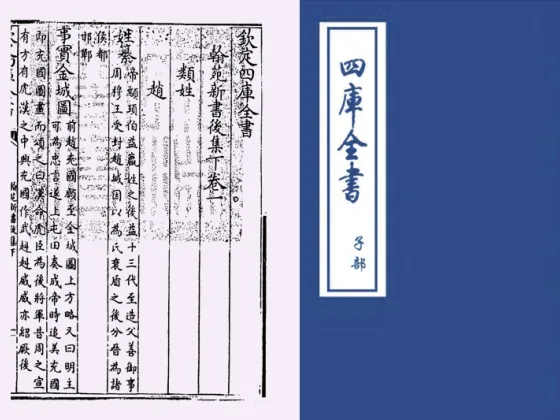 欽定四庫全書
翰苑新書後集下卷一
類姓
趙
姓纂
帝顓頊伯益嬴姓之後益十三代至造父善御事
周穆王受封趙城因以為氏衰盾之後分晉為諸
侯都
邯鄲
事實金城圖
前趙充國願至金城圖上方略又曰明主
可為忠言遂上屯田奏成帝時追美充國
即充國圖畫而頌之曰漢命虎臣為後將軍昔周之宣
有方有虎漢之中興充國作武赳赳威威亦紹厥後
翰苑新書後集下
四庫全書
子部